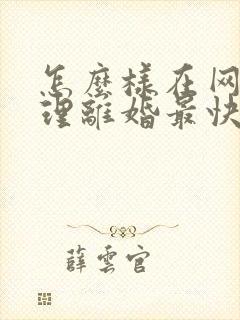 怎麼樣在网
理離婚最快
薛雲官